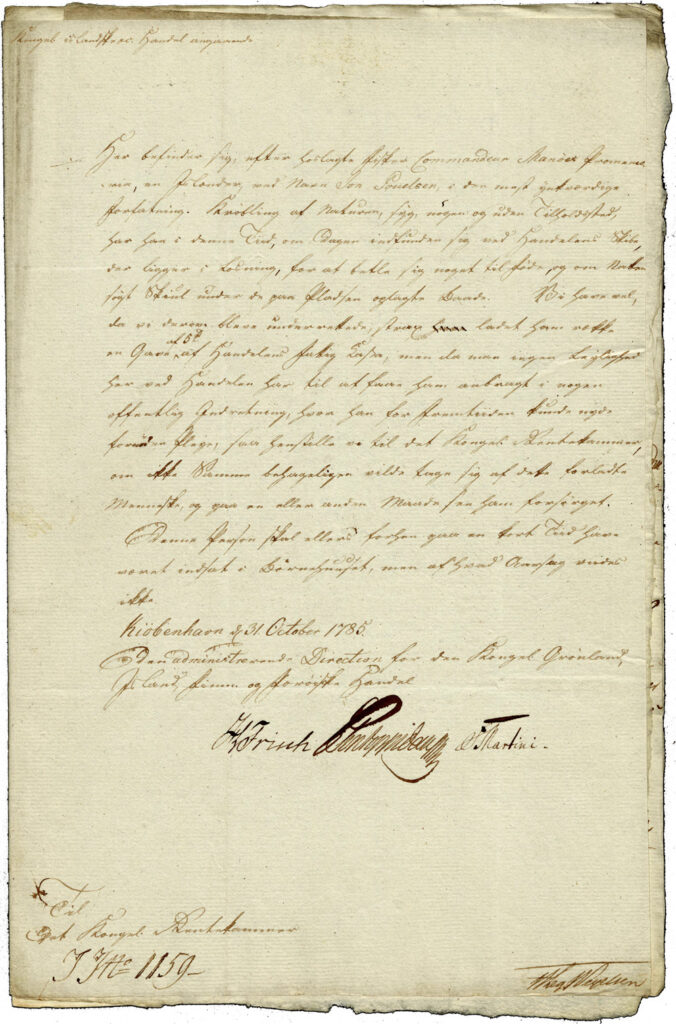 Kongel. islandske Handel angaaende
Her befinder sig, efter hoslagte Commandeur Manöes Promemo
ria, en Islænder, ved Navn Jon i den mest ynkværdige
Forfatning. Krøbling af Naturen, syg, nøgen og uden Tilholdsted,
har han i denne Tid, om Dagen indfunden sig ved Handelens Skibe
der ligger i Losning, for at betle sig noget til Føde, og om Natten
søgt Skiul under de paa Pladsen oplagte Baade. Vi have vel,
da vi derom bleve underrettede, strax ladet ham række
en Gave af 5 rd af Handelens Fattig Kasse, men da man ingen Leylighed
her ved Handelen har til at faae ham anbragt i nogen
offentlig Indretning, hvor han for Fremtiden kunde nyde
fornøden Pleye, saa henstille vi til det Kongel. Rentekammer,
om ikke Samme behageligen vilde tage sig af dette forladte
Menneske, og paa en eller anden Maade see ham forsørget.
Denne Person skal ellers forhen paa en kort Tid have
været indsat i Børnehuuset, men af hvad Aarsag vides
ikke.
Kiöbenhavn d. 31. October 1785.
Den administrerende Direction for den Kongel. Grønland,
Island, Finm. og Færöiske Handel
Frisch Pontoppidan Martini.
Til
Det Kongel. Rentekammer
I J No 1159